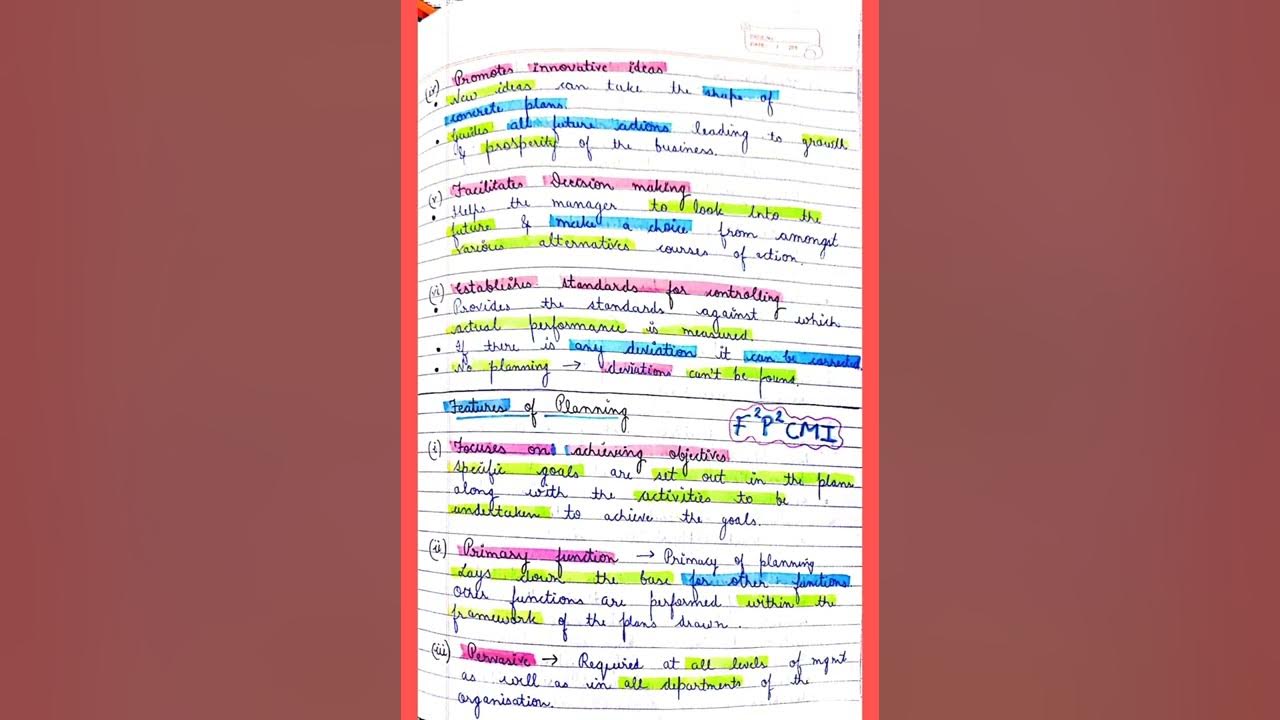 PAGE No.
DATE:
(iv) Promotes innovative ideas
• New ideas can take the shape of
concrete plans.
• Guides all future actions leading to growth
& prosperity of the business.
(v) Facilitates Decision making
• Helps the manager to look into the
future & make a choice from amongst
various alternatives courses of action.
(vi) Establishes standards for controlling
• Provides the standards against which
actual performance is measured.
• If there is any deviation it can be corrected.
• No planning → deviations can't be found.
Features of Planning
F²P²CMI
(i) Focuses on achieving objectives
Specific goals are set out in the plans
along with the activities to be
undertaken to achieve the goals.
(ii) Primary function → Primacy of planning
Lays down the base for other functions.
Other functions are performed within the
framework of the plans drawn.
(iii) Pervasive → Required at all levels of mgmt
as well as in all departments of the
organisation.